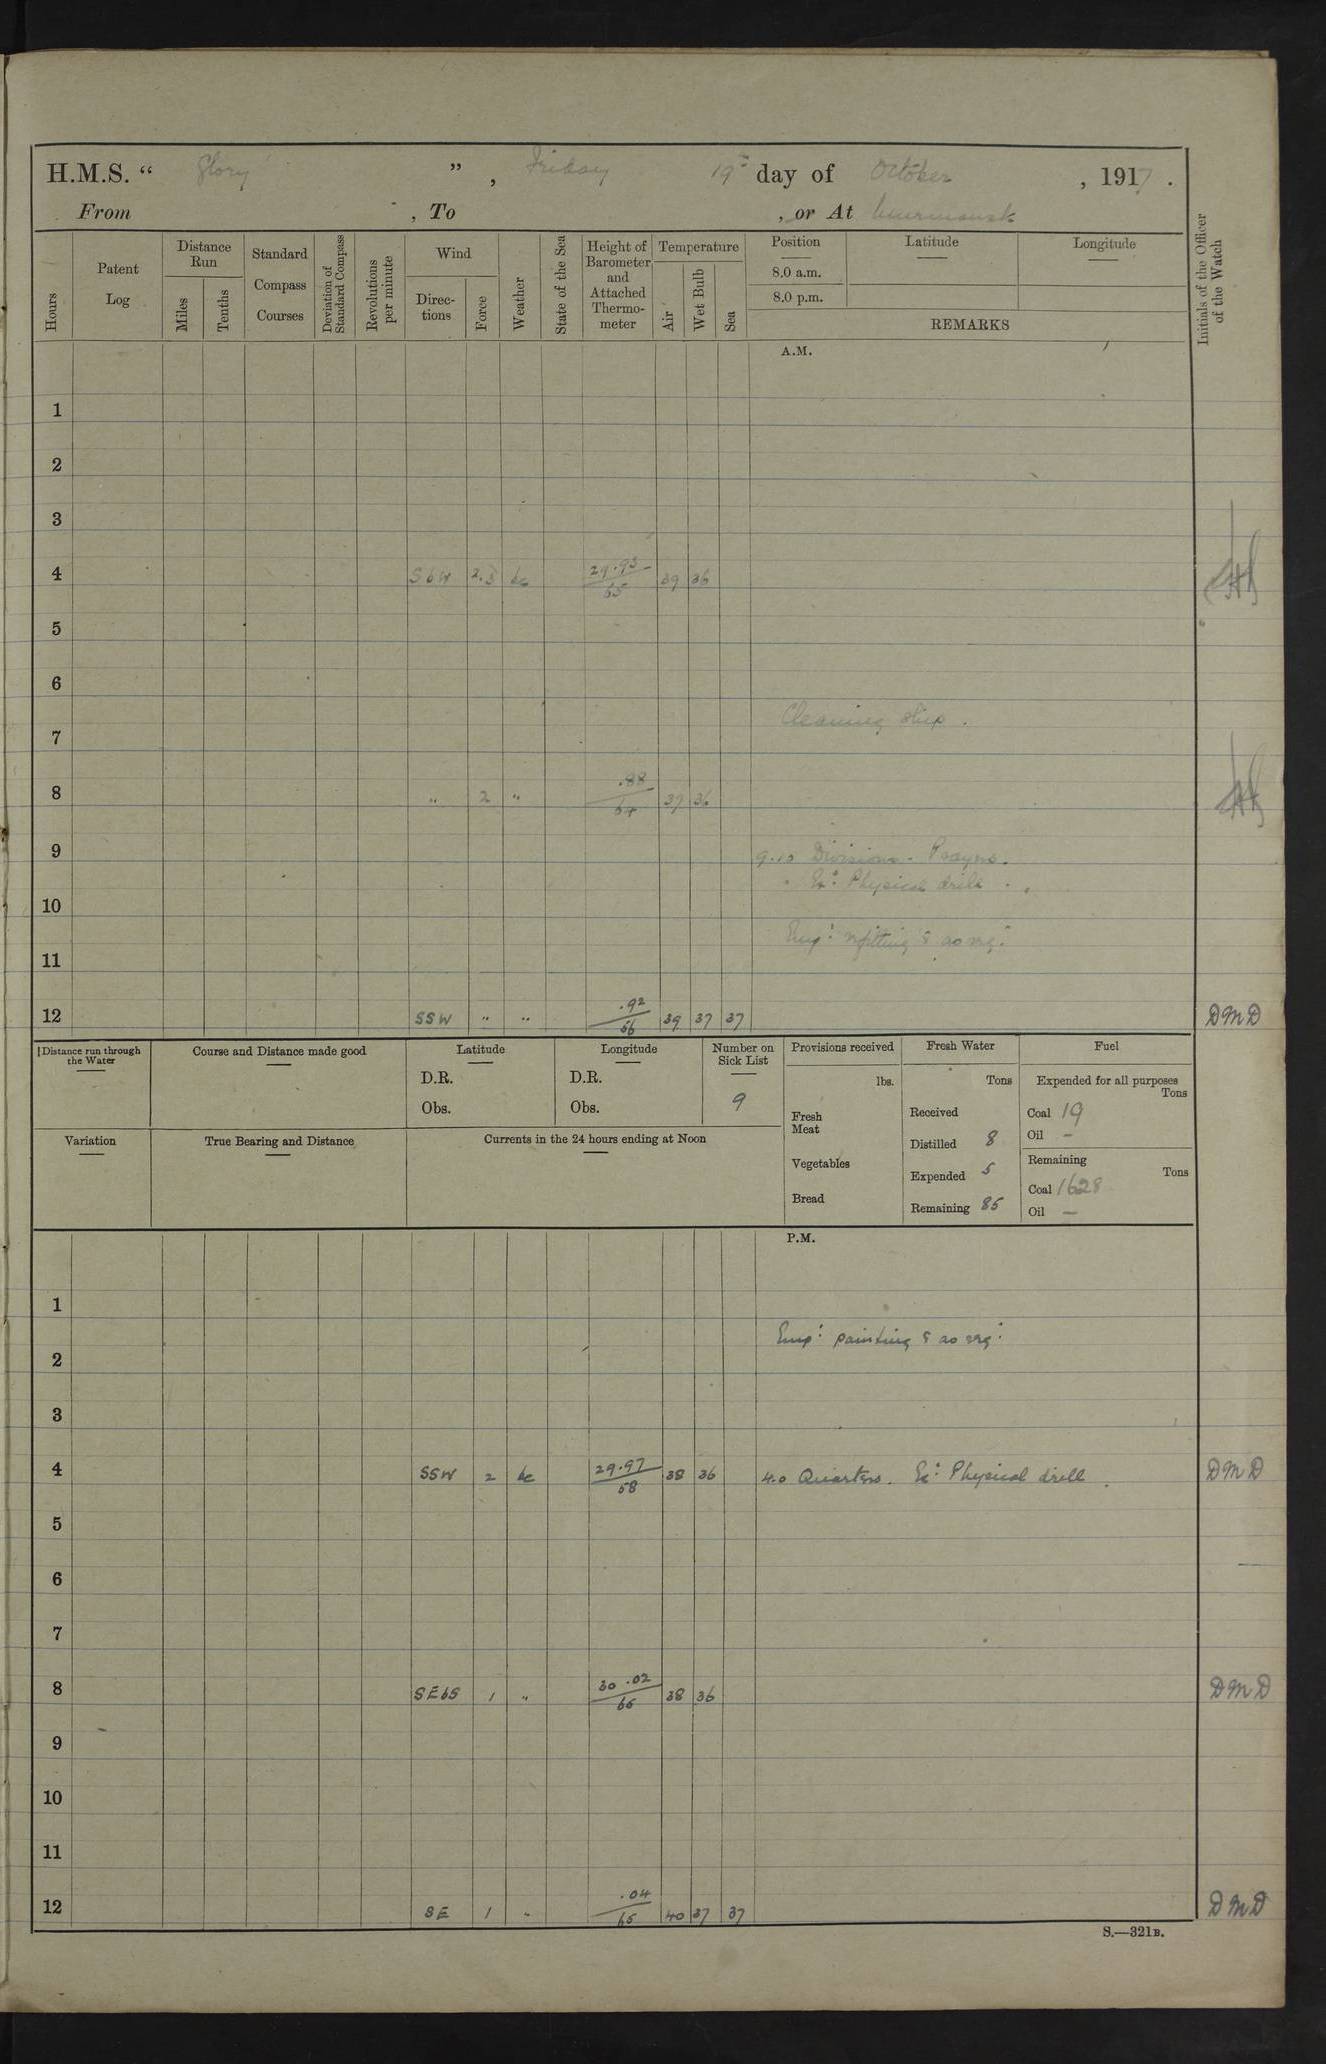 H.M.S. “ Glory ” , Friday 19th day of October , 1917 .
From , To , or At Murmansk
Hours
Patent Log
Distance Run
Miles
Tenths
Standard Compass Courses
Deviation of Standard Compass
Revolutions per minute
Wind
Directions
Force
Weather
State of the Sea
Height of Barometer and Attached Thermometer
Temperature
Air
Wet Bulb
Sea
Position
8.0 a.m.
8.0 p.m.
Latitude
Longitude
REMARKS
Initials of the Officer of the Watch
A.M.
1
2
3
4 SbW 2.3 bc 29.93/65 39 36
5
6
Cleaning ship.
7
8 " 2 " .88/64 37 36
9 9.10 Divisions. Prayers.
" Ex: Physical drill.
10
Emp: refitting & as req:
11
12 SSW " " .92/56 39 37 37 DMD
Distance run through the Water
Course and Distance made good
Latitude
D.R.
Obs.
Longitude
D.R.
Obs.
Number on Sick List
9
Provisions received
lbs.
Fresh Meat
Vegetables
Bread
Fresh Water
Tons
Received
Distilled 8
Expended 5
Remaining 85
Fuel
Expended for all purposes
Tons
Coal 19
Oil —
Remaining
Tons
Coal 1628
Oil —
Variation
True Bearing and Distance
Currents in the 24 hours ending at Noon
P.M.
1
Emp: painting & as req:
2
3
4 SSW 2 bc 29.97/58 38 36 4.0 Quarters. Ex: Physical drill. DMD
5
6
7
8 SEbS 1 " 30.02/65 38 36 DMD
9
10
11
12 SE 1 " .04/65 40 37 37 DMD
S.—321B.